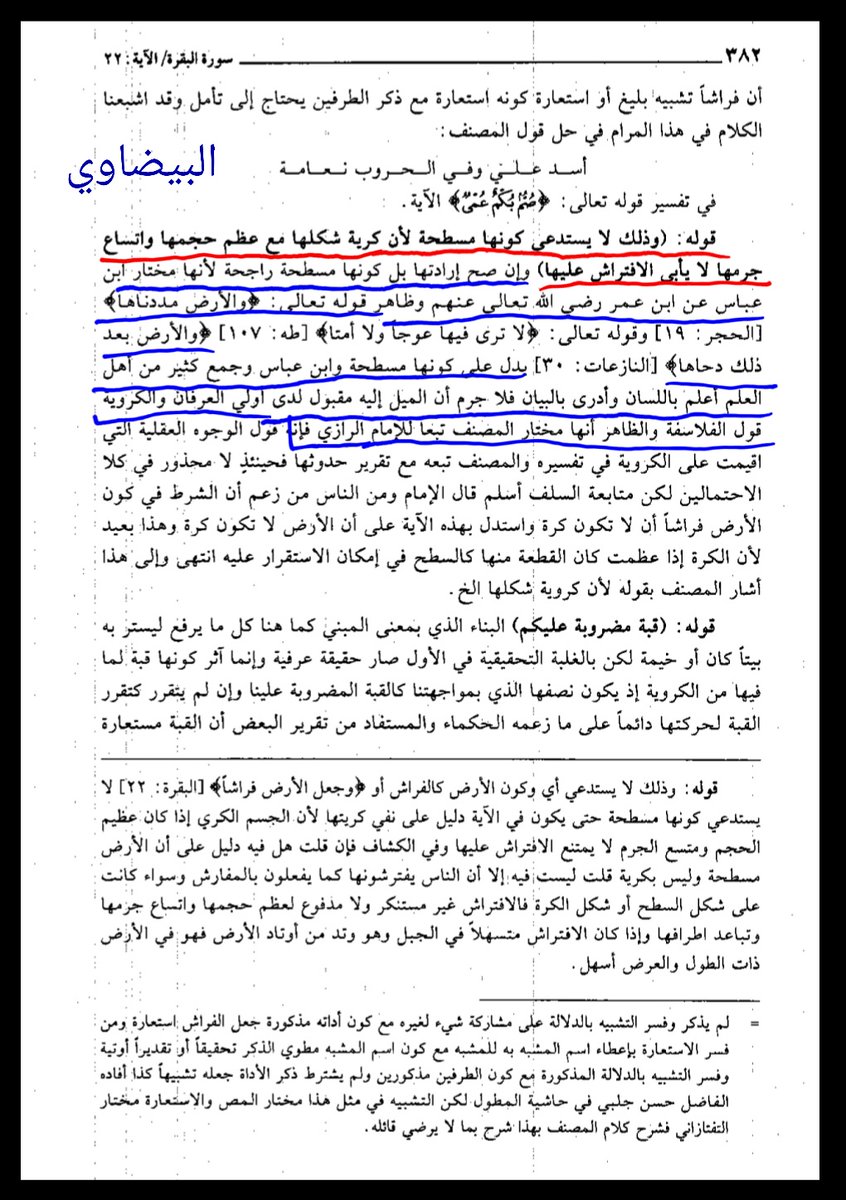 ٣٨٢ سورة البقرة/ الآية: ٢٢
أن فراشاً تشبيه بليغ أو استعارة كونه استعارة مع ذكر الطرفين يحتاج إلى تأمل وقد اشبعنا
الكلام في هذا المرام في حل قول المصنف:
البيضاوي
أسد علي وفي الحروب نعامة
في تفسير قوله تعالى: ﴿صُمٌّ بُكْمٌ عُمْيٌ﴾ الآية.
قوله: (وذلك لا يستدعي كونها مسطحة لأن كرية شكلها مع عظم حجمها واتساع
جرمها لا يأبى الافتراش عليها) وإن صح إرادتها بل كونها مسطحة راجحة لأنها مختار ابن
عباس عن ابن عمر رضي الله تعالى عنهم وظاهر قوله تعالى: ﴿والأرض مددناها﴾
[الحجر: ١٩] وقوله تعالى: ﴿لا ترى فيها عوجاً ولا أمتا﴾ [طه: ١٠٧] ﴿والأرض بعد
ذلك دحاها﴾ [النازعات: ٣٠] يدل على كونها مسطحة وابن عباس وجمع كثير من أهل
العلم أعلم باللسان وأدرى بالبيان فلا جرم أن الميل إليه مقبول لدى أولي العرفان والكروية
قول الفلاسفة والظاهر أنها مختار المصنف تبعا للإمام الرازي فإنه قول الوجوه العقلية التي
اقيمت على الكروية في تفسيره والمصنف تبعه مع تقرير حدوثها فحينئذٍ لا محذور في كلا
الاحتمالين لكن متابعة السلف أسلم قال الإمام ومن الناس من زعم أن الشرط في كون
الأرض فراشاً أن لا تكون كرة واستدل بهذه الآية على أن الأرض لا تكون كرة وهذا بعيد
لأن الكرة إذا عظمت كان القطعة منها كالسطح في إمكان الاستقرار عليه انتهى وإلى هذا
أشار المصنف بقوله لأن كروية شكلها الخ.
قوله: (قبة مضروبة عليكم) البناء الذي بمعنى المبني كما هنا كل ما يرفع ليستر به
بيتاً كان أو خيمة لكن بالغلبة التحقيقية في الأول صار حقيقة عرفية وإنما آثر كونها قبة لما
فيها من الكروية إذ يكون نصفها الذي بمواجهتنا كالقبة المضروبة علينا وإن لم يتقرر كتقرر
القبة لحركتها دائماً على ما زعمه الحكماء والمستفاد من تقرير البعض أن القبة مستعارة
قوله: وذلك لا يستدعي أي وكون الأرض كالفراش أو ﴿وجعل الأرض فراشاً﴾ [البقرة: ٢٢] لا
يستدعي كونها مسطحة حتى يكون في الآية دليل على نفي كريتها لأن الجسم الكري إذا كان عظيم
الحجم ومتسع الجرم لا يمتنع الافتراش عليها وفي الكشاف فإن قلت هل فيه دليل على أن الأرض
مسطحة وليس بكرية قلت ليست فيه إلا أن الناس يفترشونها كما يفعلون بالمفارش وسواء كانت
على شكل السطح أو شكل الكرة فالافتراش غير مستنكر ولا مدفوع لعظم حجمها واتساع جرمها
وتباعد اطرافها وإذا كان الافتراش متسهلاً في الجبل وهو وتد من أوتاد الأرض فهو في الأرض
ذات الطول والعرض أسهل.
= لم يذكر وفسر التشبيه بالدلالة على مشاركة شيء لغيره مع كون أداته مذكورة جعل الفراش استعارة ومن
فسر الاستعارة بإعطاء اسم المشبه به للمشبه مع كون اسم المشبه مطوي الذكر تحقيقاً أو تقديراً أوتية
وفسر التشبيه بالدلالة المذكورة مع كون الطرفين مذكورين ولم يشترط ذكر الأداة جعله تشبيهاً كذا أفاده
الفاضل حسن جلبي في حاشية المطول لكن التشبيه في مثل هذا مختار المص والاستعارة مختار
التفتازاني فشرح كلام المصنف بهذا شرح بما لا يرضي قائله.